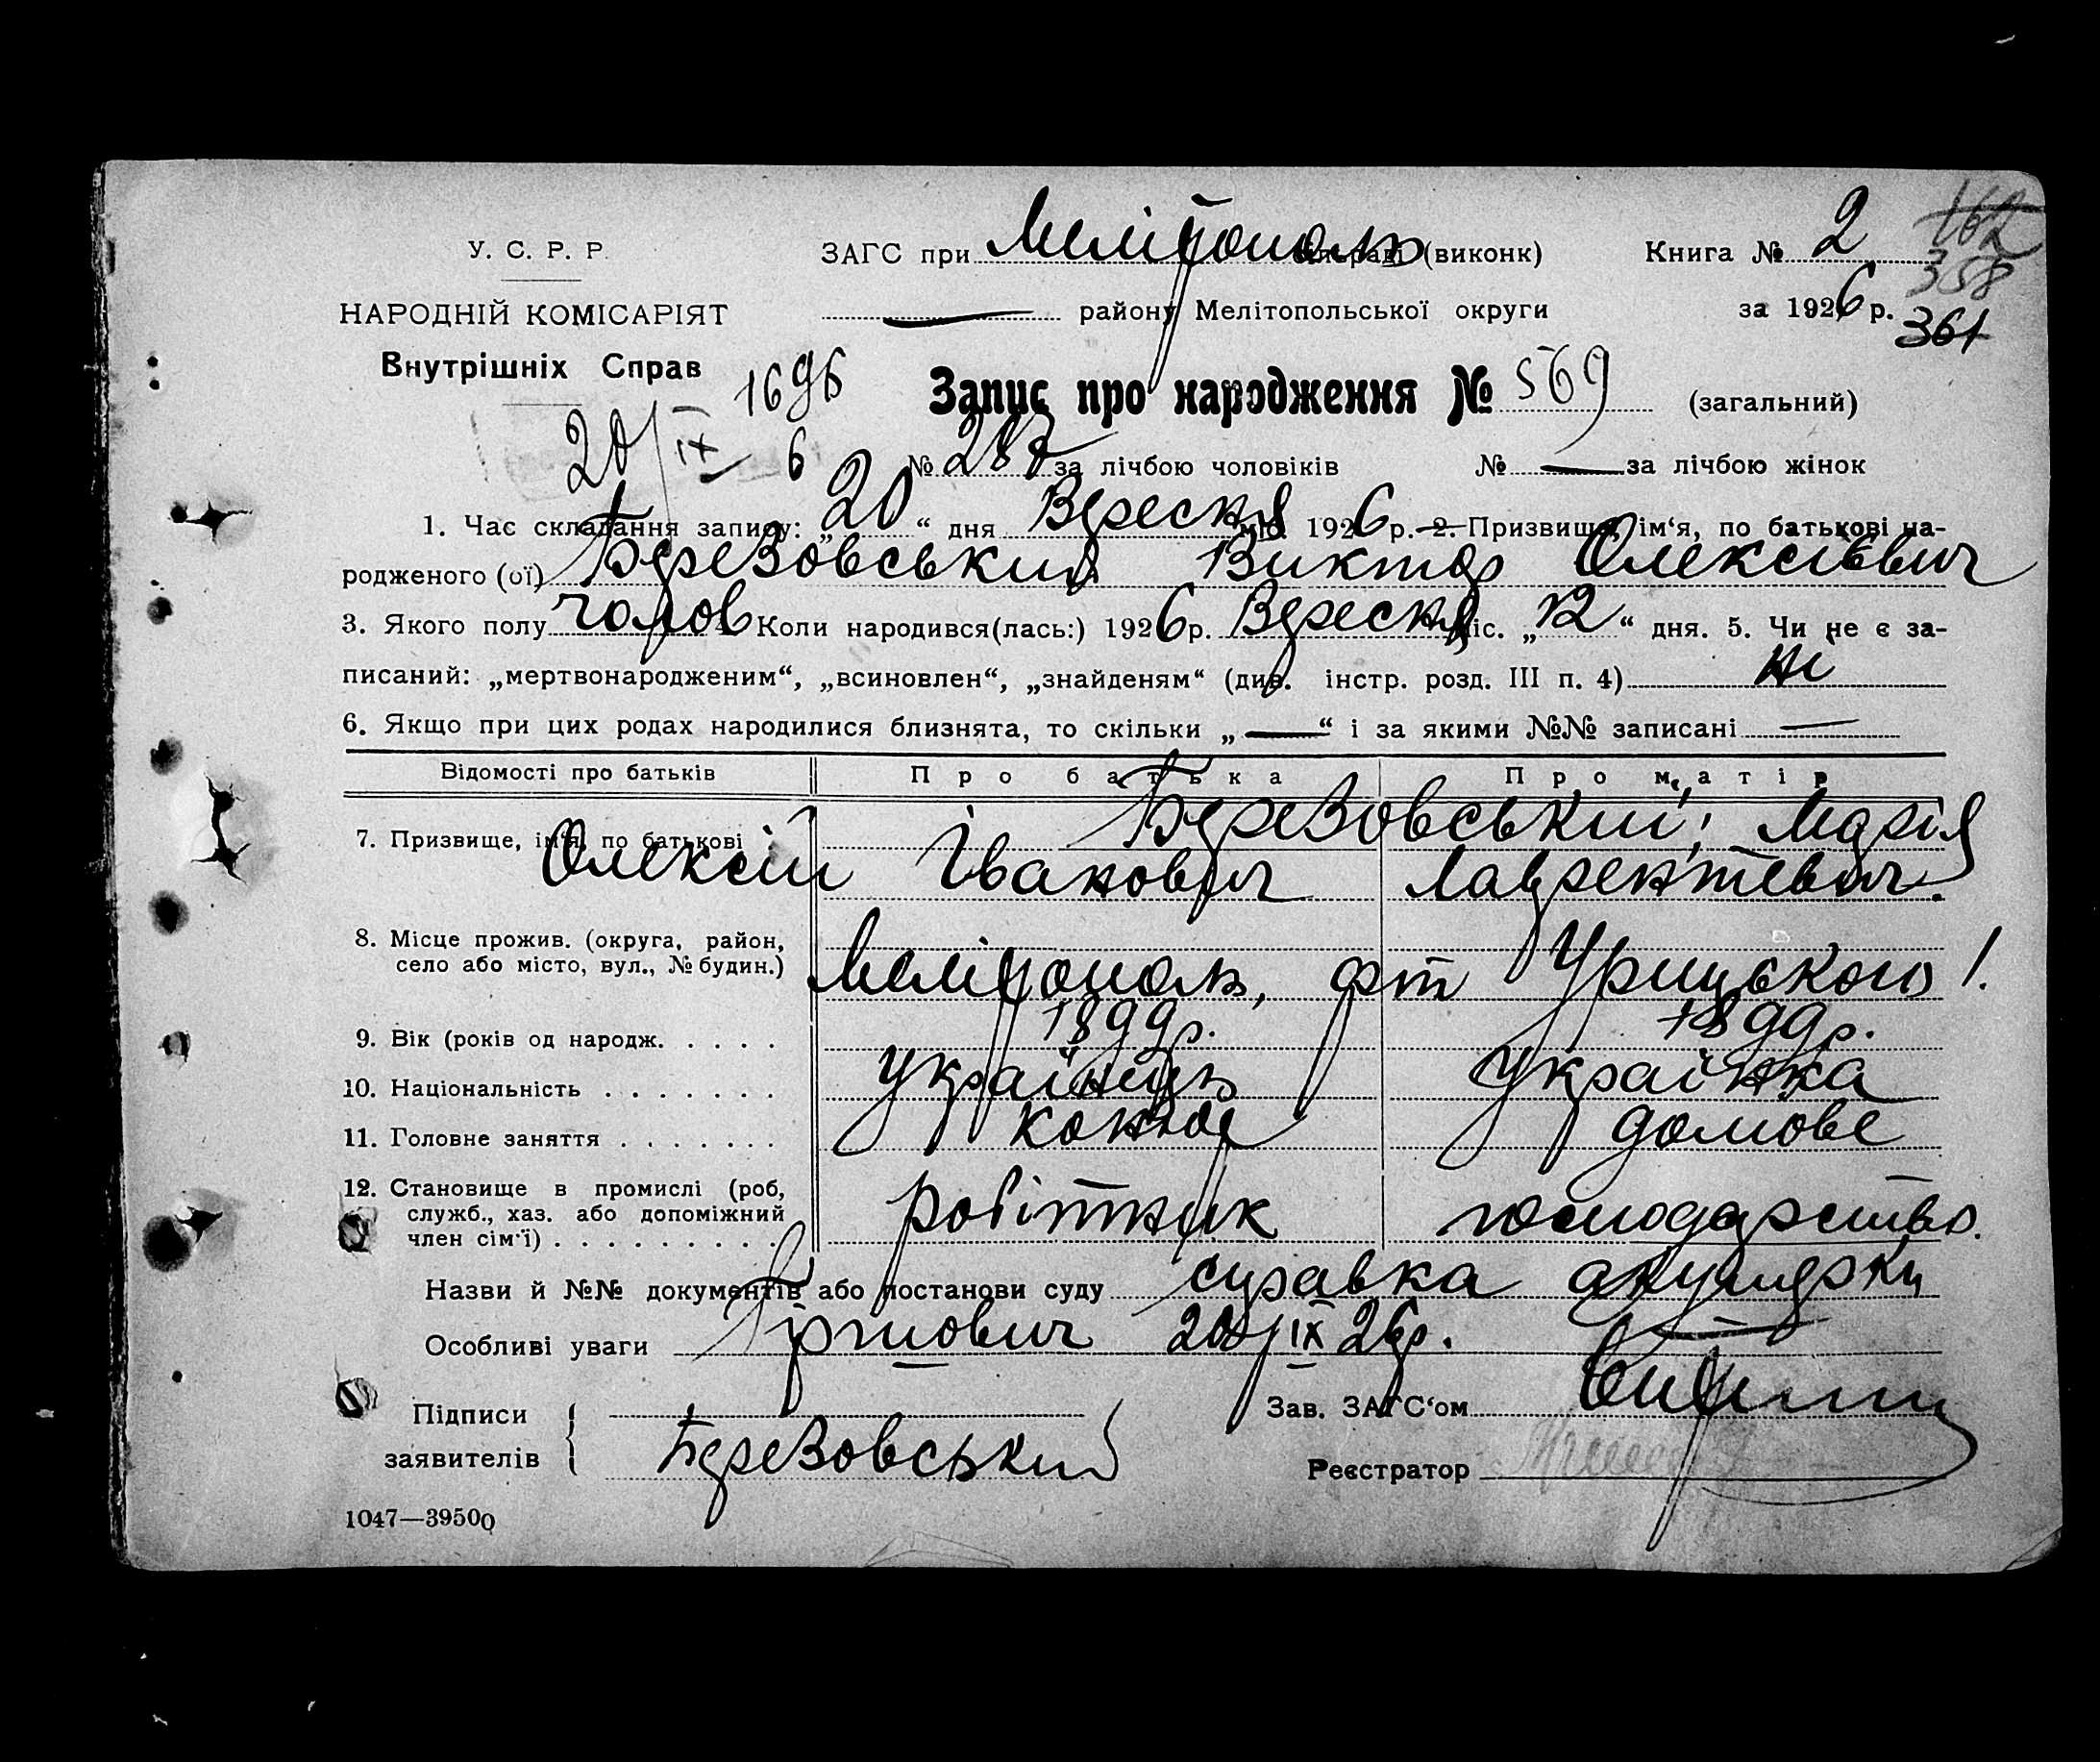 У. С. Р. Р.
НАРОДНІЙ КОМІСАРІЯТ
Внутрішніх Справ
ЗАГС при Мелітополь (виконк)
району Мелітопольської округи
Книга № 2
за 1926 р.
162
358
361
1696
20/IX 6
Запис про народження № 569 (загальний)
№ 287 за лічбою чоловіків № — за лічбою жінок
1. Час складання запису: „20“ дня Вересня міс. 1926 р. 2. Призвище, ім‘я, по батькові на-
родженого (ої) Березовський Виктор Олексієвич
3. Якого полу чолов 4. Коли народився(лась:) 1926 р. Вересня міс. „12“ дня. 5. Чи не є за-
писаний: „мертвонародженим“, „всиновлен“, „знайденям“ (див. інстр. розд. III п. 4) ні
6. Якщо при цих родах народилися близнята, то скільки „—“ і за якими №№ записані —
Відомості про батьків Про батька Про матір
7. Призвище, ім‘я, по батькові Березовський; Марія
Олексій Іванович Лаврентевич.
8. Місце прожив. (округа, район,
село або місто, вул., № будин.) Мелітополь, Урицького 1.
9. Вік (років од народж. . . . . 1899р. 1899р.
10. Національність . . . . . . . українць українка
11. Головне заняття . . . . . . . домове
12. Становище в промислі (роб, служб., хаз. або допоміжний член сім‘ї) . . . . . . . . . робітник господарство.
Назви й №№ документів або постанови суду справка акушерки
Особливі уваги 20/IX 26р.
Підписи
заявителів Березовський
Зав. ЗАГС‘ом
Реєстратор
1047—39500